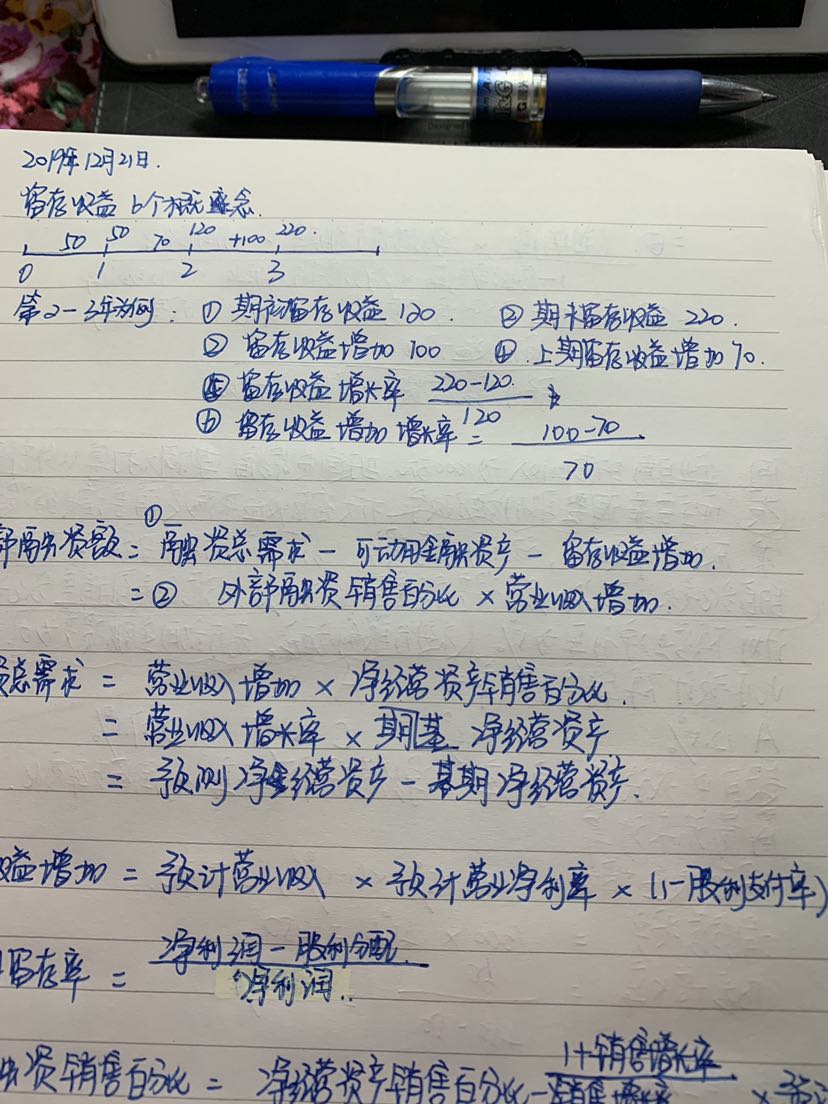 2019年12月21日.
留存收益 6个概念.
50 50 70 120 +100 220.
0 1 2 3
第2-3年为例: ① 期初留存收益 120. ③ 期末留存收益 220.
② 留存收益增加 100 ④ 上期留存收益增加 70.
⑤ 留存收益增长率 220-120
120
⑥ 留存收益增加增长率 = 100-70
70
部融资额 = ① 融资总需求 - 可动用金融资产 - 留存收益增加.
= ② 外部融资销售百分比 × 营业收入增加.
资总需求 = 营业收入增加 × 净经营资产销售百分比.
= 营业收入增长率 × 期基 净经营资产
= 预测净经营资产 - 基期净经营资产.
收益增加 = 预计营业收入 × 预计营业净利率 × (1-股利支付率)
留存率 = 净利润-股利分配.
净利润.
资销售百分比 = 净经营资产销售百分比 - 1+销售增长率
销售增长率 × 预